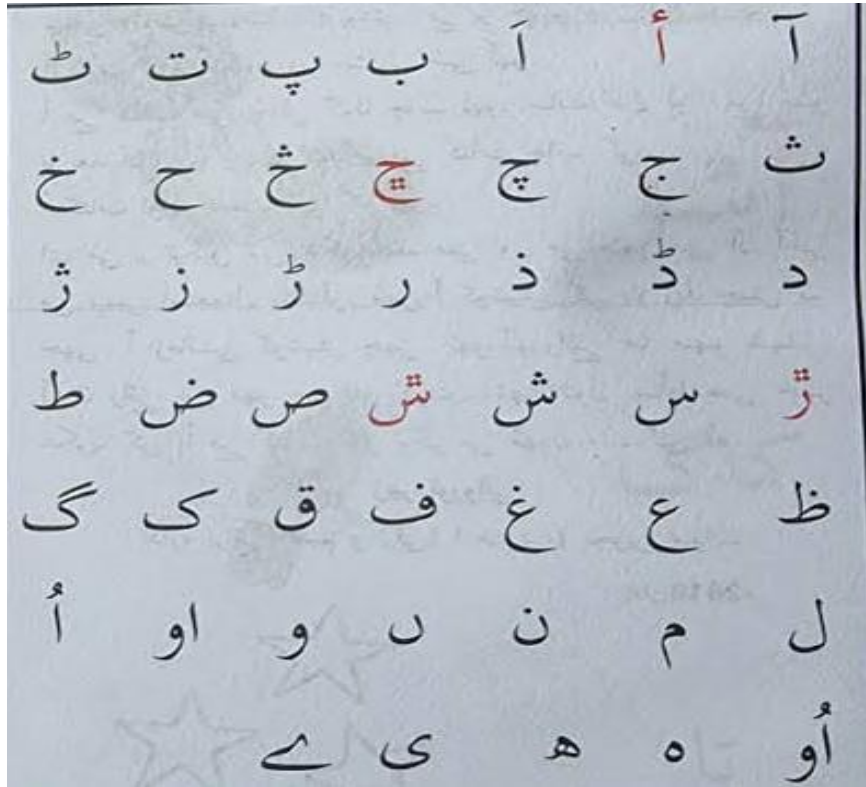 آ أ اَ ب پ ت ٹ
ث ج چ ڇ څ ح خ
د ڈ ذ ر ڑ ز ژ
ڙ س ش ݜ ص ض ط
ظ ع غ ف ق ک گ
ل م ن ں و او اُ
اُو ہ ھ ی ے